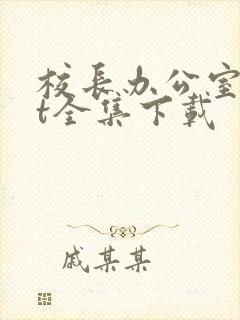 校长办公室
t全集下载
戚某某